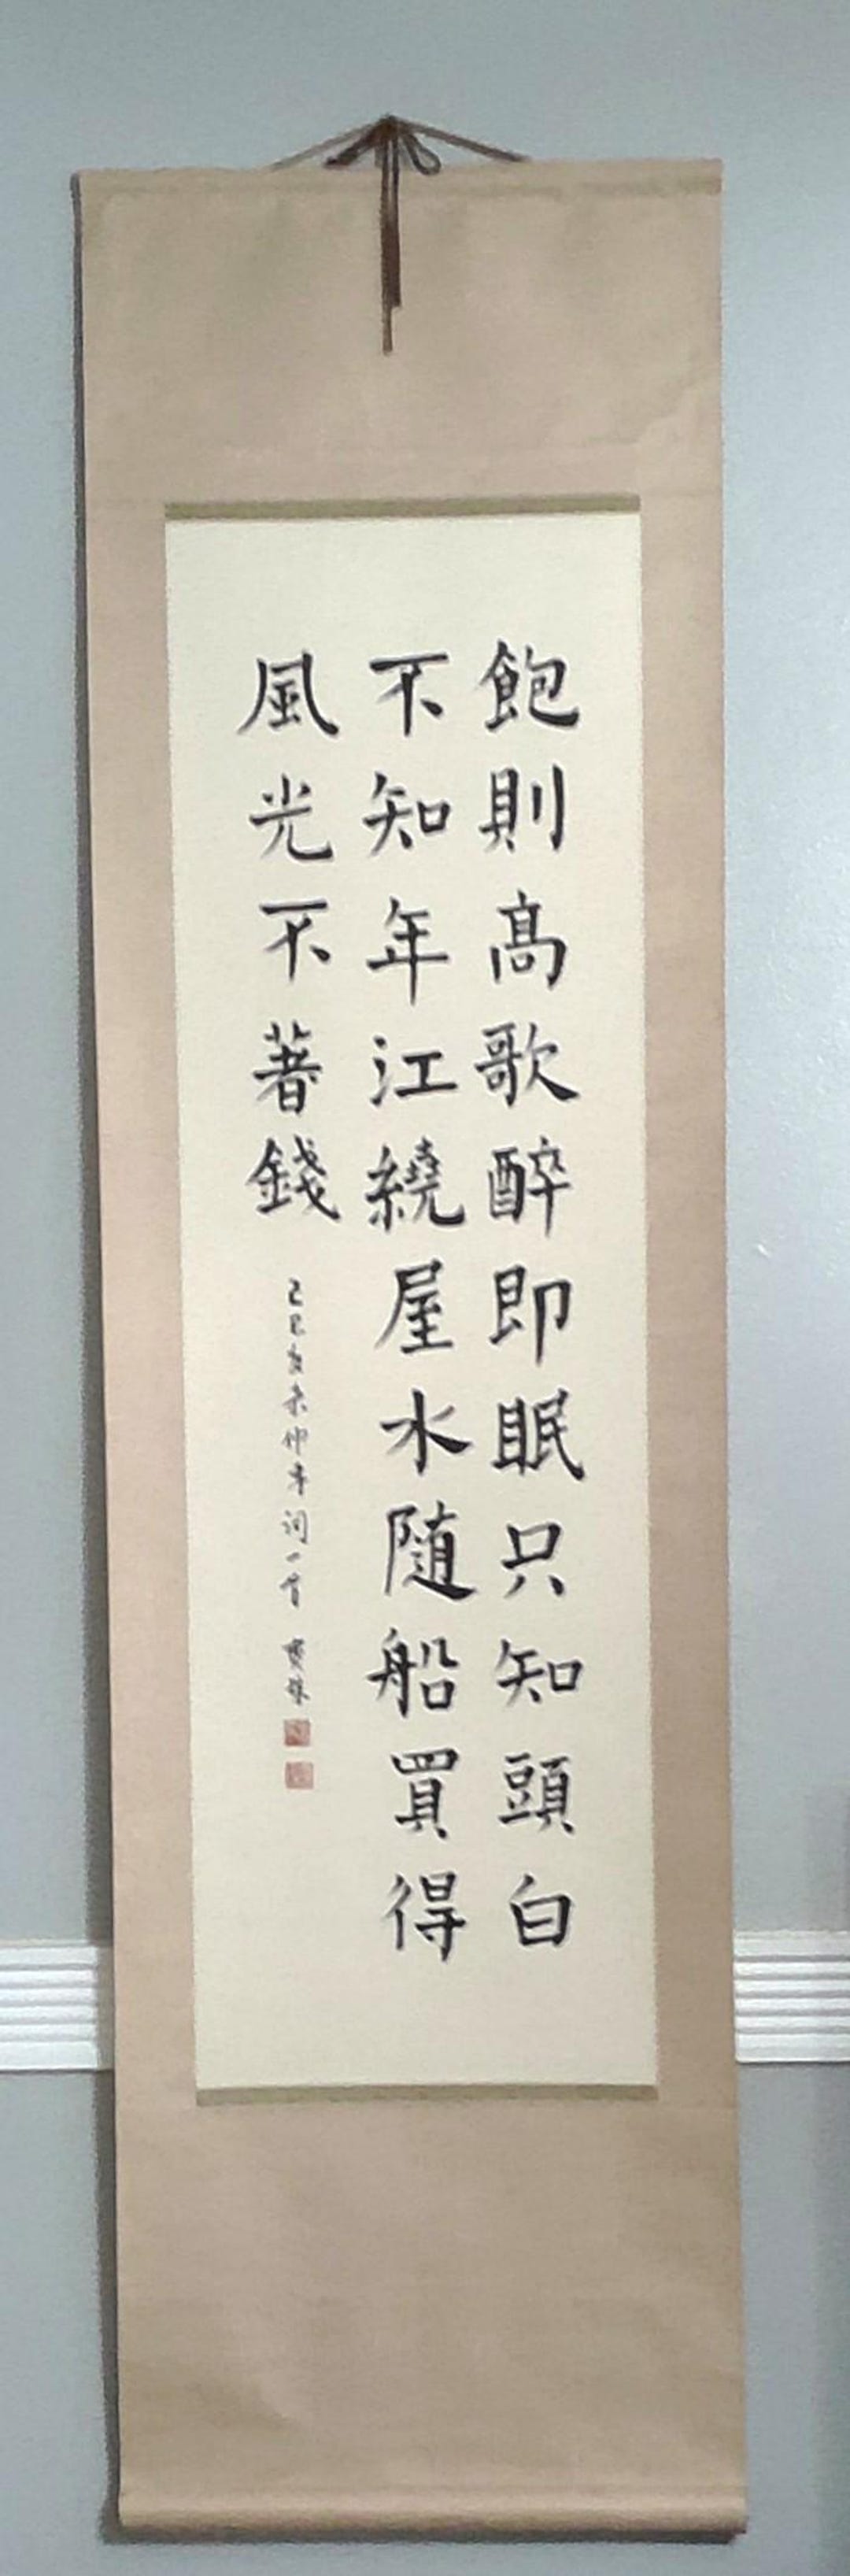 飽則高歌醉即眠只知頭白
不知年江繞屋水隨船買得
風光不著錢
己巳夏朱仲〇詞一首